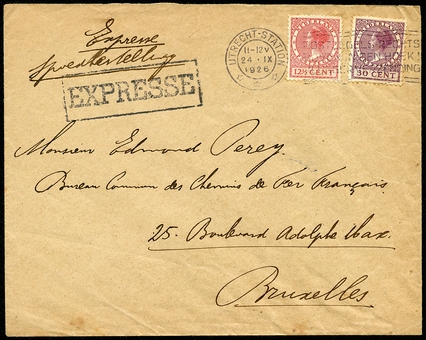 Expresse
Spoedbestelling
EXPRESSE
UTRECHT-STATION
11-12V
24 · IX
1926
12½ CENT
30 CENT
Monsieur Edmond Perey.
Bureau Commun des Chemins de Fer Français
25. Boulevard Adolphe Max.
Bruxelles